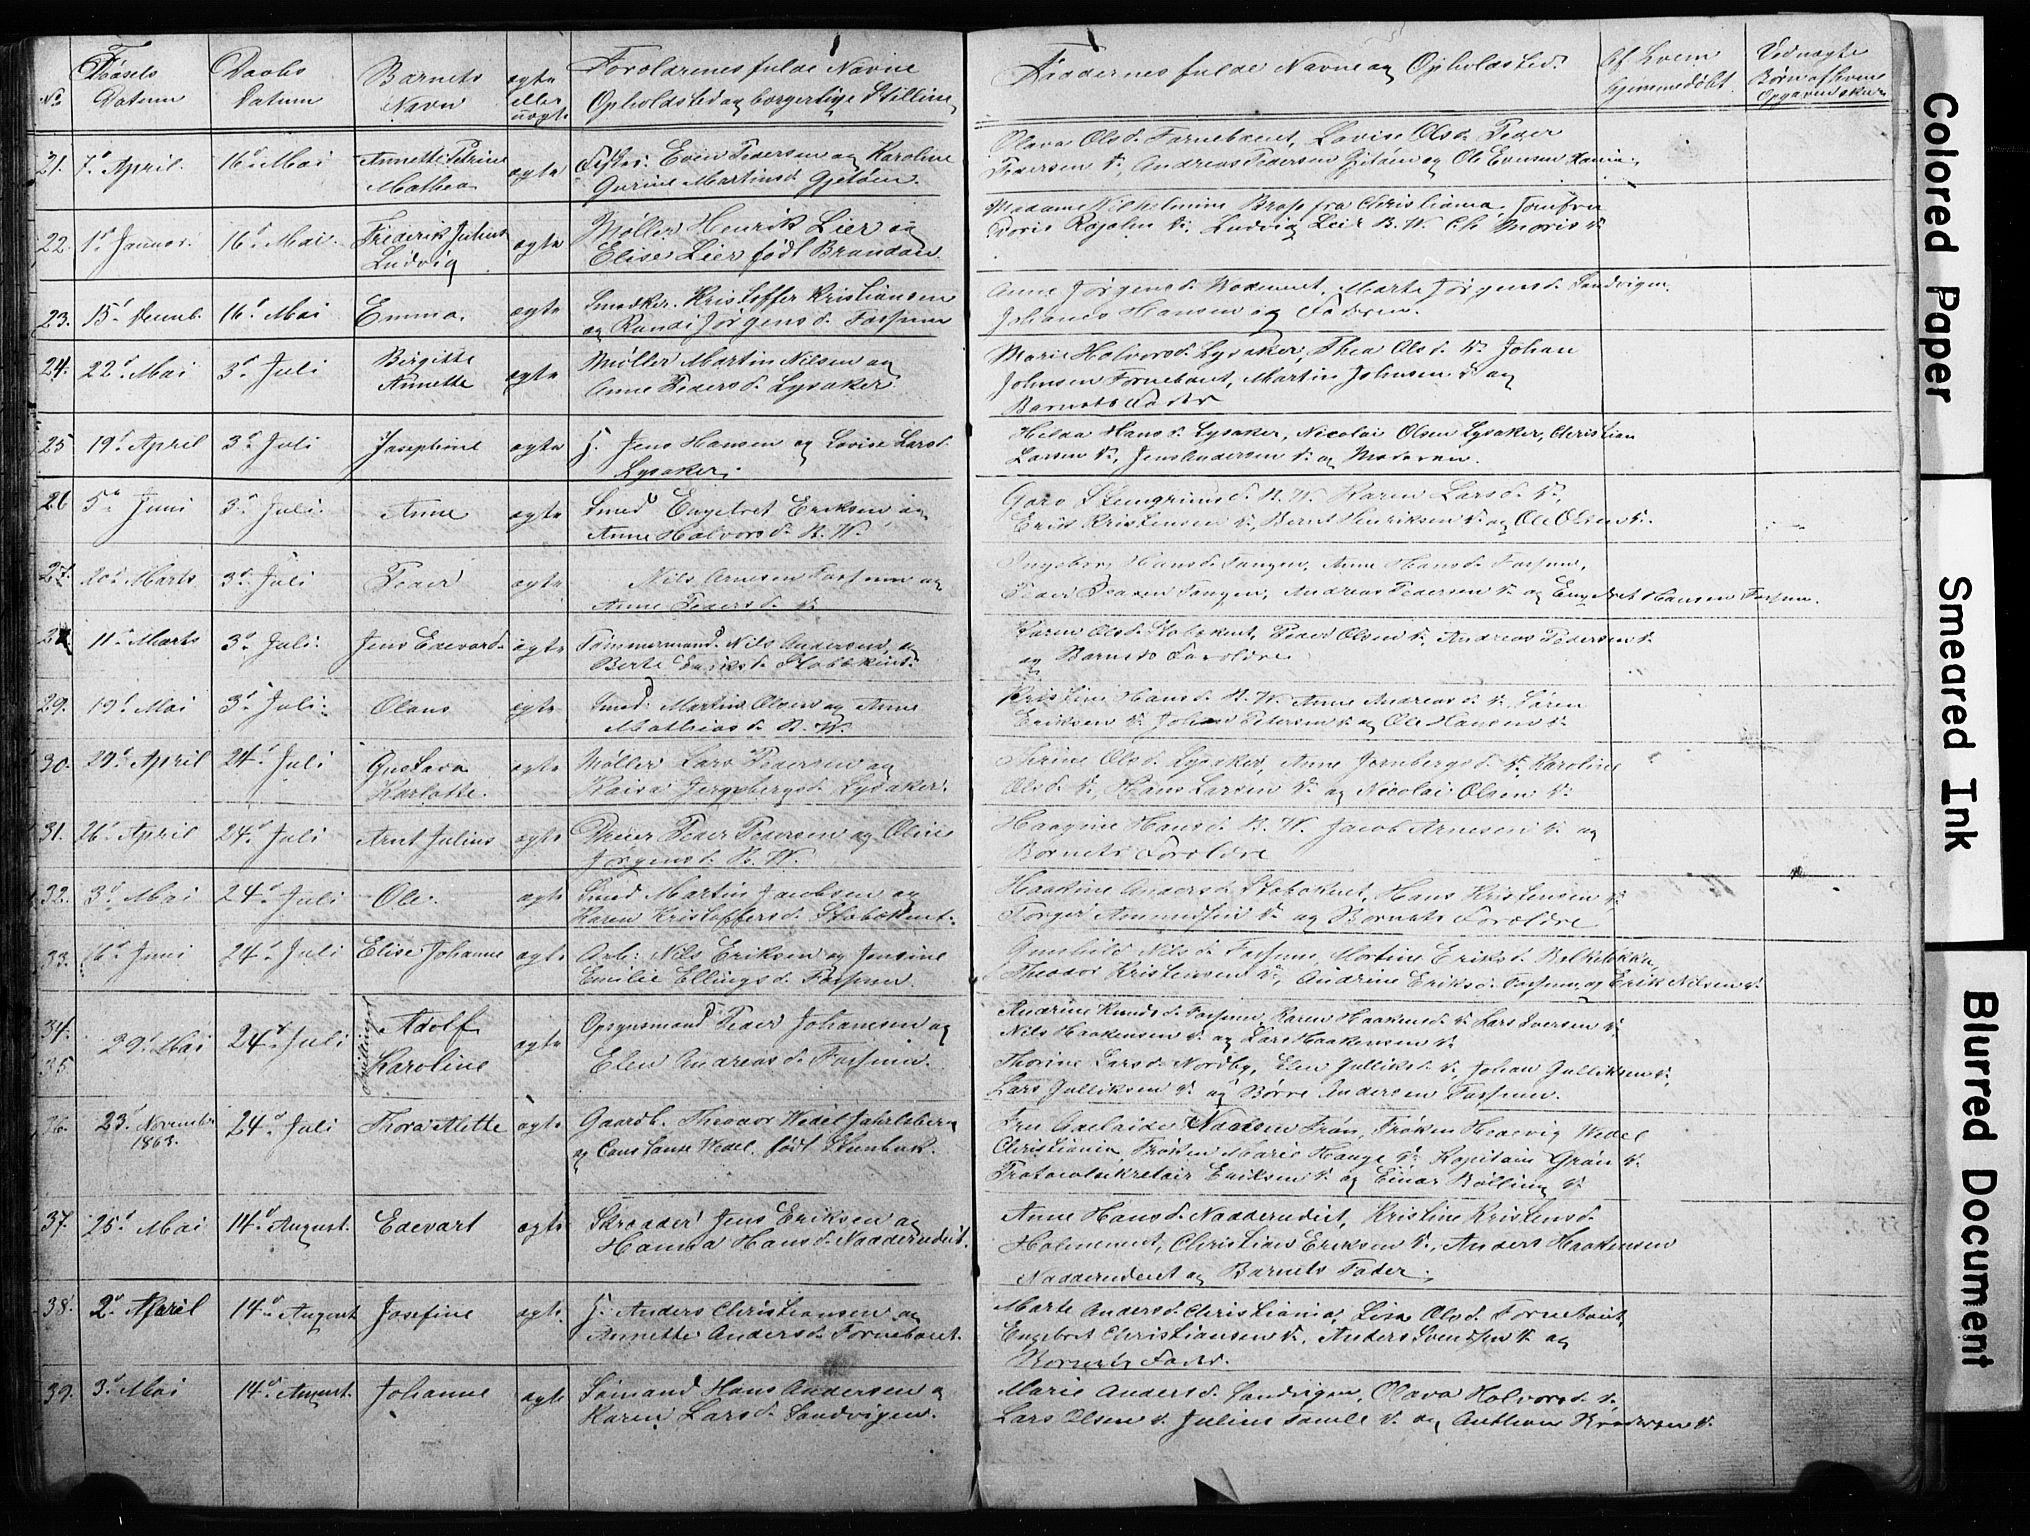 No
Fødsels
Datum
Daabs
Datum
Barnets
Navn
ægte
eller
uægte
Forældrenes fulde Navne
Opholdsted og borgerlige Stilling
Faddernes fulde Navne og Opholdsted
Af hvem
hjemmedøbt
Ved uægte
Børn af hvem
Opgaven sker
21. 7d April. 16d Mai Annette Petrine
Mathea
ægte
Fisker: Even Pedersen og Karoline
Gurine Martinsd Gjetøen.
Olava Olsd. Forneboeiet, Lovise Olsd. Peder
Pedersen do, Andreas Pedersen Gjetøen og Ole Evensen
22. 1d Januar. 16d Mai. Frederik Julius
Ludvig
ægte
Møller Henrik Lier og
Elise Lier født
Madame Vilhelmine fra Christiania. Jomfru
do, Ludvig Lier B. W. Ch. do
23. 15d Decemb. 16d Mai Emma. ægte
Smedker. Kristoffer Kristiansen
og Randi Jørgensd. Fossum
Anne Jørgensd. Marte Jørgensd. Sandvigen,
Johannes Hansen og Faderen.
24. 22d Mai 3d Juli Birgitte
Annette
ægte
Møller Martin Nilsen og
Anne Pedersd. Lysaker
Marie Halvorsd. Lysaker, Thea Olsd. do Johan
Johnsen Forneboeiet, Martin Johnsen do og
Barnets Fader
25 19d April 3d Juli Josephine ægte
J. Jens Hansen og Lovise Larsd.
Lysaker.
Helda Hansd. Lysaker, Nicolai Olsen Lysaker, Christian
Larsen do, Jens Andersen do og Moderen.
26 5d Juni 3d Juli. Anne ægte
Smed Engebret Eriksen og
Anne Halvorsd. B. W.
Goro Stengrimsd. B. W. Karen Larsd. do,
Kristensen do, Bernt Henriksen do og Ole Olsen do.
27. 20d Marts 3d Juli Peder ægte
Nils Arnesen Fossum og
Anne Pedersd. do
Ingeborg Hansd. Tangen, Anne Hansd. Fossum,
Peder Tangen, Andreas Pedersen do og Engebret Hansen Fossum.
28 11d Marts 3d Juli. Jens Edevard. ægte
Tømmermand. Nils Andersen, og
Berte Eriksd. Stabækeiet.
Karen Olsd. Stabækeiet, Peder Olsen do Andreas Pedersen do
og Barnets Forældre
29. 19d Mai 3d Juli. Olaus ægte
Smed: Martin Olsen og Anne
Mathiasd. B. W.
Kristine Hansd. B. W. Anne Andreasd. do Søren
Eriksen do Johan Petersen do og Ole Hansen do
30. 29d April 24d Juli Gustava
Karlotte.
ægte
Møller Lars Pedersen og
Kaisa Lysaker.
Olsd. Lysaker, Anne do, Karoline
Olsd. do, Hans Larsen do og Nicolai Olsen do
31. 26d April 24d Juli Arnt Julius ægte
Dreier Peder Pedersen og Oline
Jørgensd. B. W.
Haagine Hansd. B. W. Jacob Arnesen do og
Barnets Forældre
32. 3d Mai 24d Juli Ole. ægte
Smed Martin Jacobsen og
Karen Kristoffersd. Stabækeiet.
Haakine Andersd. Stabækeiet, Hans Kristensen do
Torger Amundsen do og Barnets Forældre
33. 16d Juni 24d Juli Elise Johanne ægte
Arb: Nils Eriksen og Jensine
Emilie Ellingsd. Fossum.
Gunhild Nilsd. Fossum, Martine Eriksd.
Theodor Kristensen do, Andrine Eriksd. Fossum, og Erik Nilsen do
34.
35
29d Mai 24d Juli
Tvillinger
Adolf
Karoline
ægte
Opsynsmand Peder Johannsen og
Elen Andreasd. Fossum.
Andrine Knudsd. Fossum, Karen Haakensd. do Lars Iversen do
Nils Haakensen do og Lars Haakensen do
Thorine Larsd. Nordby, Elen Gulliksd. do Johan Gulliksen do,
Lars Gulliksen do og Børre Andersen Fossum.
36. 23d November
1863.
24d Juli Thora Mette ægte
Gaardb. Theodor Wedel Jahrlsberg
og Constanse Wedel, født Stenbuk.
Fru Adelaide Frøken Hedevig Wedel
Christiania, Frøken Marie Hauge do Kapitain Grøn do
Protocolsekretair Eriksen do og Einar Rølling do
37. 25d Mai 14d August. Edevart ægte
Skræder Jens Eriksen og
Hanna Hansd. Nadderudeiet.
Anne Hansd. Nadderudeiet, Kristine Kristensd.
Holmeneiet, Christian Eriksen do, Anders Haakensen
Nadderudeiet og Barnets Fader.
38. 2d April 14d August Josefine ægte.
J. Anders Christiansen og
Annette Andersd. Forneboeiet.
Marte Andersd. Christiania, Lisa Olsd. Forneboeiet,
Engebret Christiansen do, Anders Svendsen do og
Barnets Fader.
39. 3d Mai 14d August. Johanne ægte
Sømand Hans Andersen og
Karen Larsd. Sandvigen.
Marie Andersd. Sandvigen, Olava Halvorsd. do
Lars Olsen do Julius do og
Colored Paper
Smeared Ink
Blurred Document